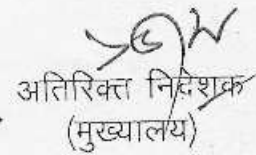 अतिरिक्त निदेशक
(मुख्यालय)